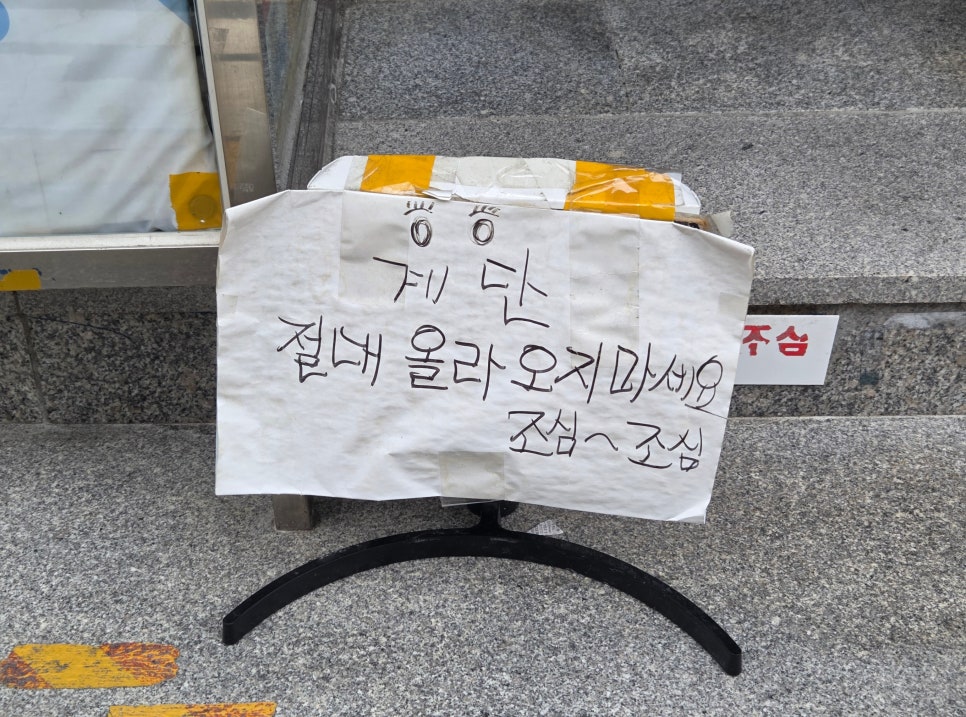 계단
절대 올라오지마세요
조심~조심
주심